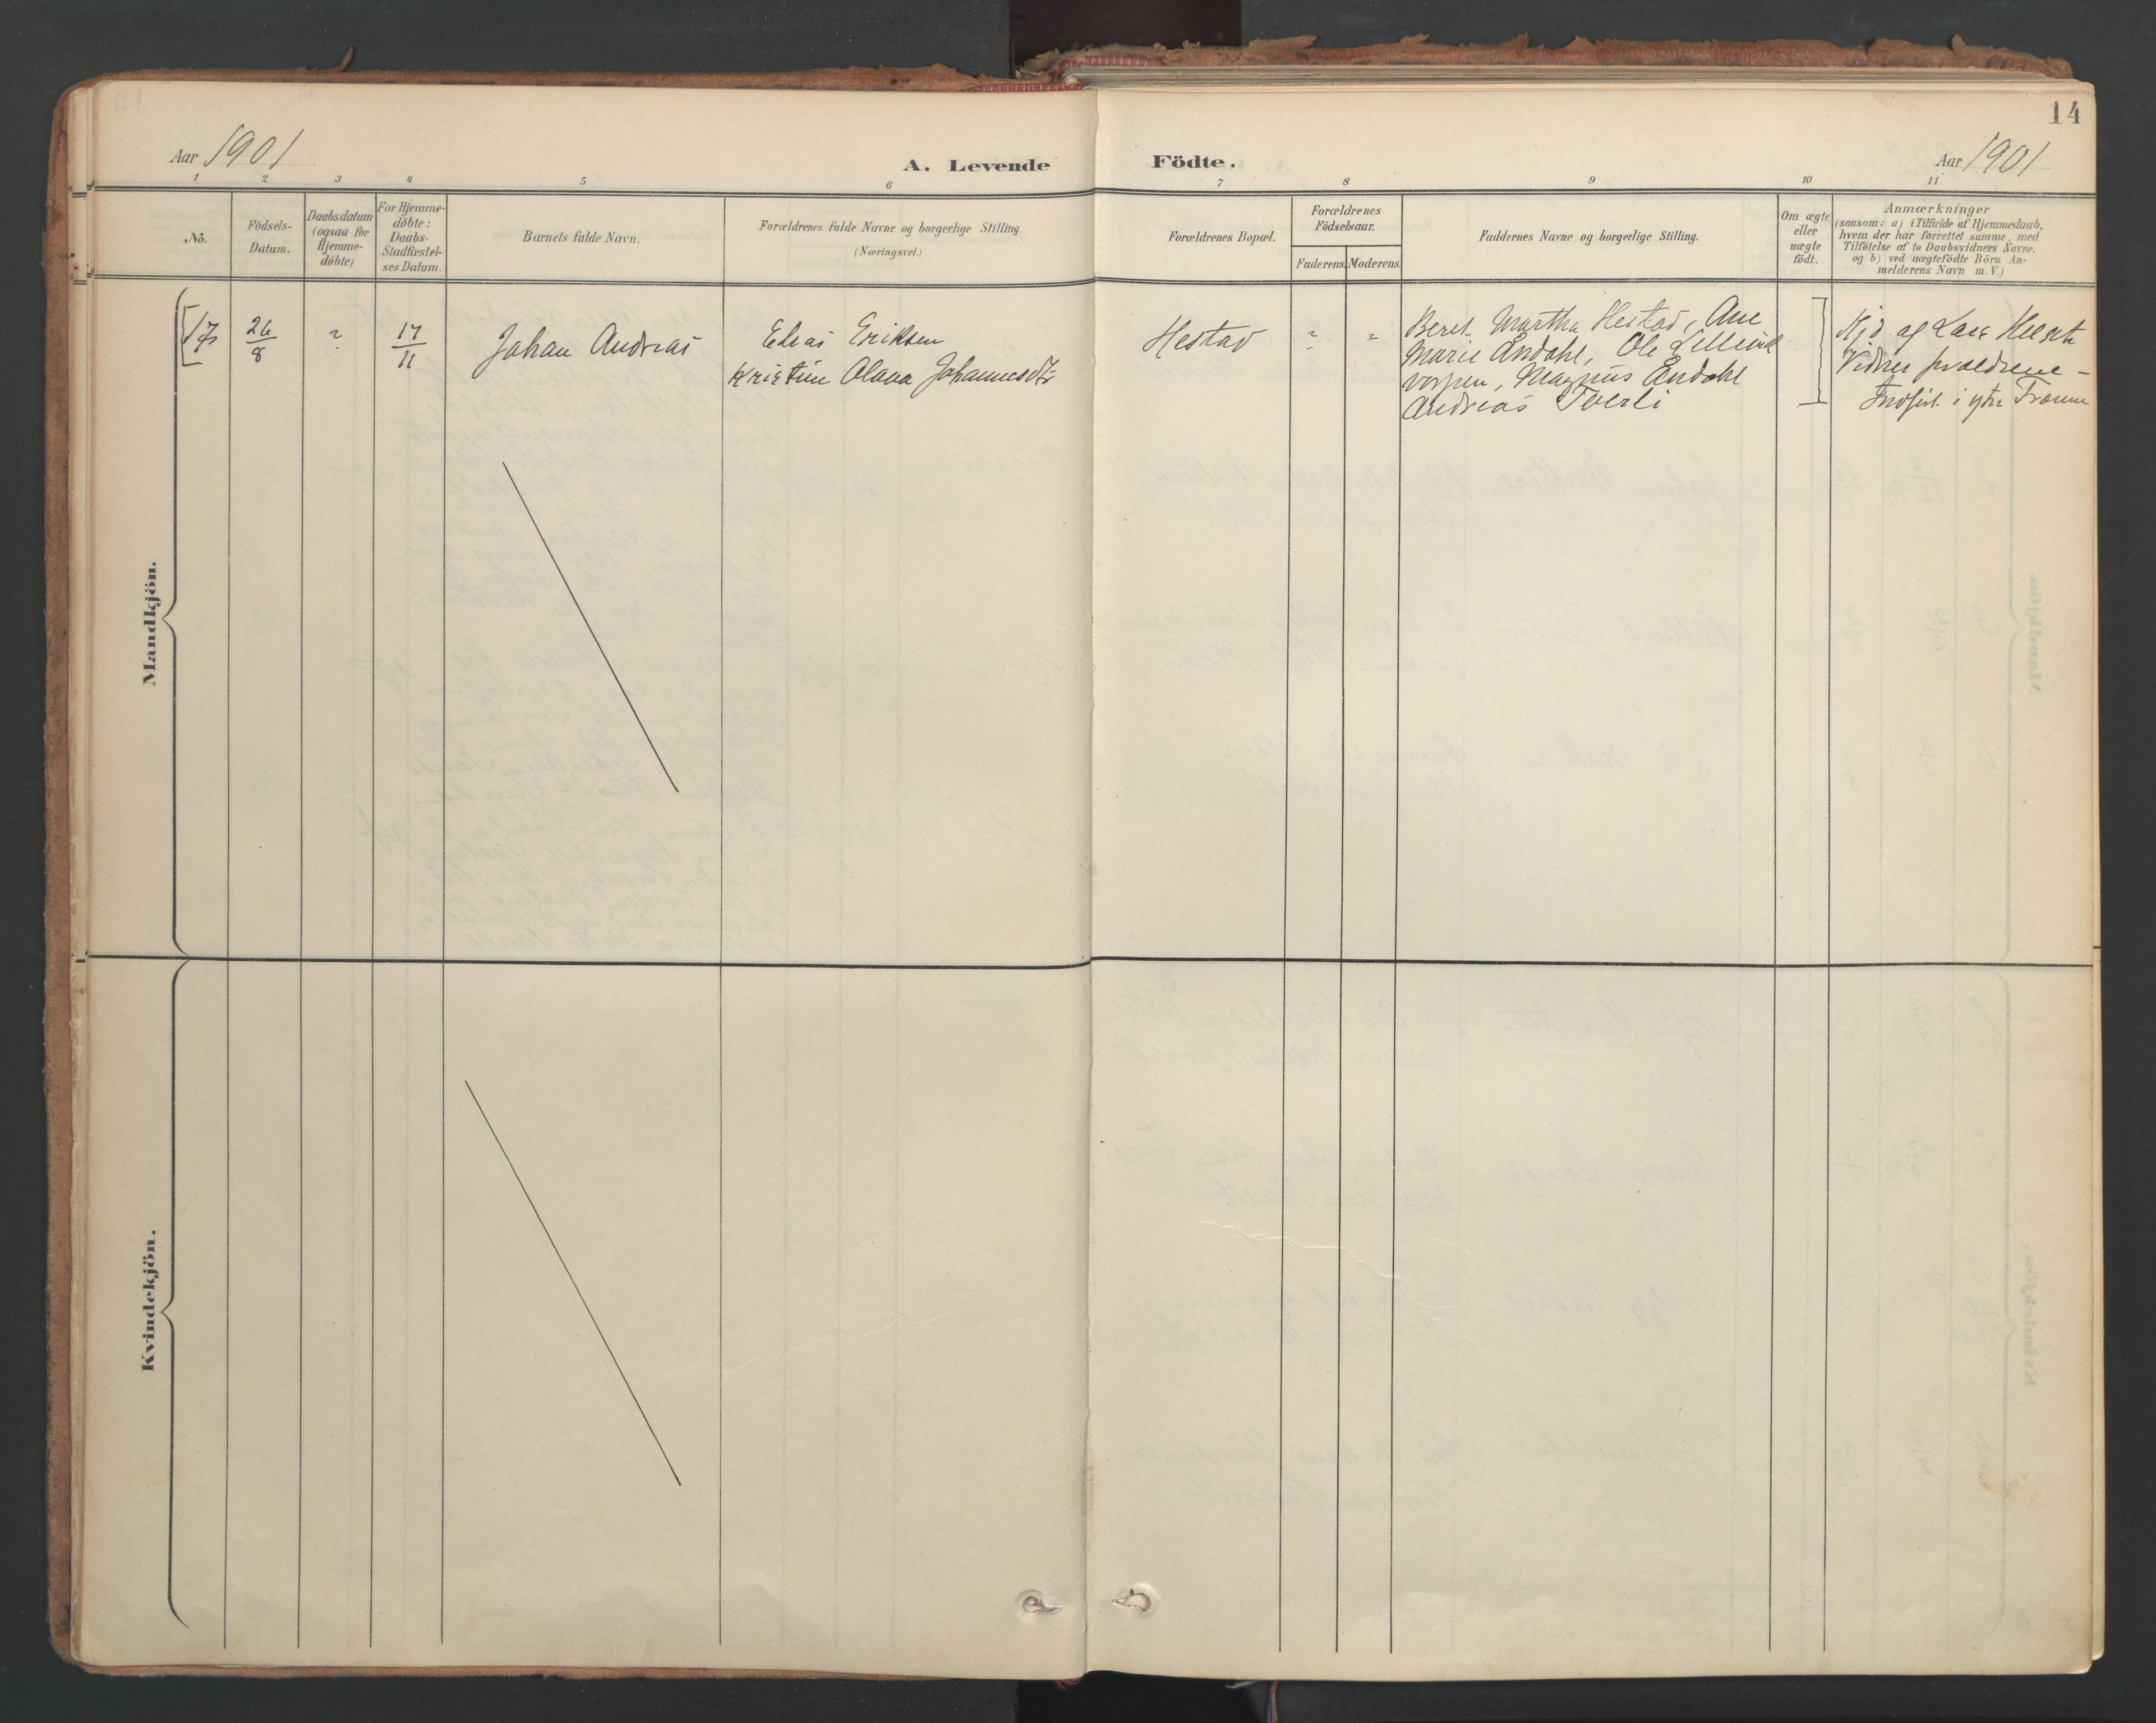 14
Aar 1901
A. Levende Födte.
Aar 1901
1 2 3 4 5 6 7 8 9 10 11
No.
Födsels-
Datum.
Daabsdatum
(ogsaa for
Hjemme-
döbte)
For Hjemme-
döbte:
Daabs-
Stadfæstel-
ses Datum.
Barnets fulde Navn.
Forældrenes fulde Navne og borgerlige Stilling.
(Næringsvei.)
Forældrenes Bopæl.
Forældrenes
Födselsaar.
Faderens. Moderens.
Faddernes Navne og borgerlige Stilling.
Om ægte
eller
uægte
födt.
Anmærkninger
(saasom: a) i Tilfælde af Hjemmedaab,
hvem der har forrettet samme, med
Tilföielse af to Daabsvidners Navne,
og b) ved uægtefödte Börn An-
melderens Navn m. V.)
Mandkjön.
[17
26/8
?
17/11
Johan Andreas
Elias Eriksen
Kristine Olava Johannesdtr
Hestad
? "
Beret Martha Hestad, Ane
Marie Andahl, Ole
Magnus Andahl
Andreas Tverli
Hjd. af Lars
Vidner forældrene -
Indført i ytre
Kvindekjön.